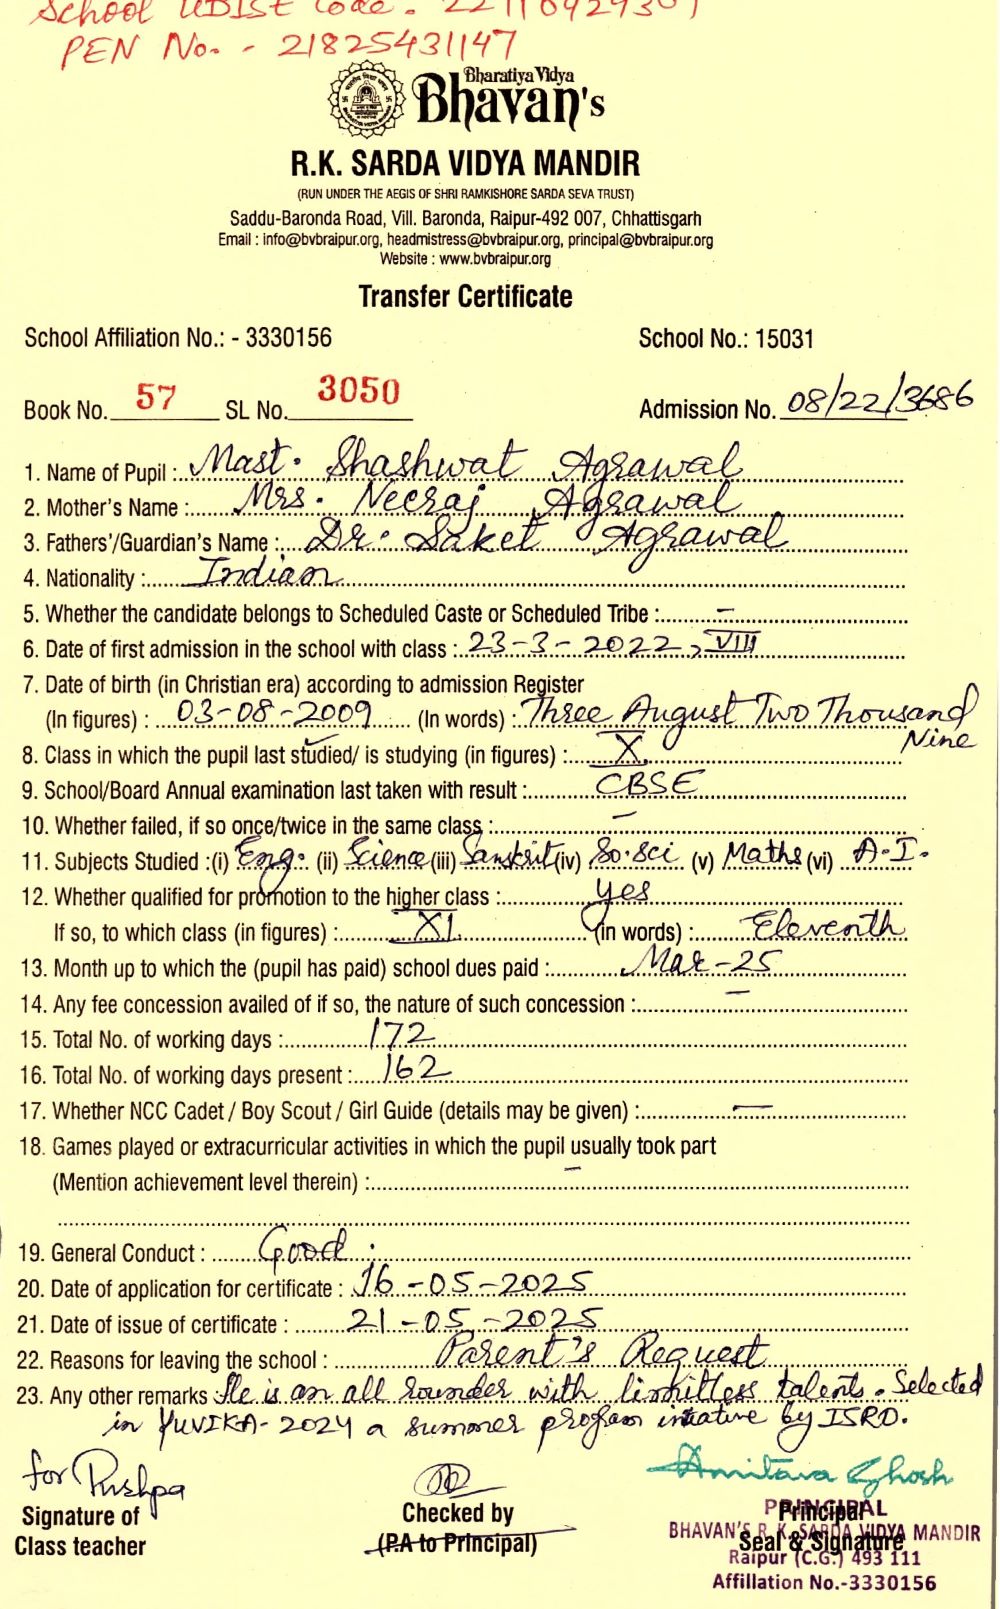 School UDISE Code. - 22110929301
PEN No. - 21825431147
Bharatiya Vidya
Bhavan's
R.K. SARDA VIDYA MANDIR
(RUN UNDER THE AEGIS OF SHRI RAMKISHORE SARDA SEVA TRUST)
Saddu-Baronda Road, Vill. Baronda, Raipur-492 007, Chhattisgarh
Email : info@bvbraipur.org, headmistress@bvbraipur.org, principal@bvbraipur.org
Website : www.bvbraipur.org
Transfer Certificate
School Affiliation No.: - 3330156 School No.: 15031
Book No. 57 SL No. 3050 Admission No. 08/22/3686
1. Name of Pupil : Mast. Shashwat Agrawal
2. Mother's Name : Mrs. Neeraj Agrawal
3. Fathers'/Guardian's Name : Dr. Saket Agrawal
4. Nationality : Indian
5. Whether the candidate belongs to Scheduled Caste or Scheduled Tribe : -
6. Date of first admission in the school with class : 23-3-2022, VIII
7. Date of birth (in Christian era) according to admission Register
(In figures) : 03-08-2009 (In words) : Three August Two Thousand
Nine
8. Class in which the pupil last studied/ is studying (in figures) : X
9. School/Board Annual examination last taken with result : CBSE
10. Whether failed, if so once/twice in the same class : -
11. Subjects Studied :(i) Eng. (ii) Science (iii) Sanskrit (iv) So.sci (v) Maths (vi) A.I.
12. Whether qualified for promotion to the higher class : yes
If so, to which class (in figures) : XI (in words) : Eleventh
13. Month up to which the (pupil has paid) school dues paid : Mar-25
14. Any fee concession availed of if so, the nature of such concession : -
15. Total No. of working days : 172
16. Total No. of working days present : 162
17. Whether NCC Cadet / Boy Scout / Girl Guide (details may be given) : -
18. Games played or extracurricular activities in which the pupil usually took part
(Mention achievement level therein) : -
19. General Conduct : Good.
20. Date of application for certificate : 16-05-2025
21. Date of issue of certificate : 21-05-2025
22. Reasons for leaving the school : Parent's Request
23. Any other remarks He is an all rounder with limitless talents. Selected
in YUVIKA-2024 a summer program intiative by ISRO.
for Pushpa
Signature of
Class teacher
Checked by
(P.A to Principal)
Amitava Ghosh
Principal
Seal & Signature
PRINCIPAL
BHAVAN'S R.K. SARDA VIDYA MANDIR
Raipur (C.G.) 493 111
Affillation No.-3330156